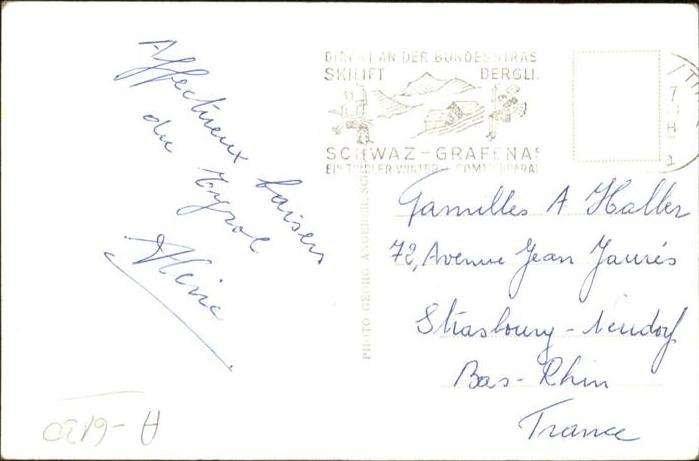 Affectueux baisers
du Tyrol
DIREKT AN DER BUNDESSTRAS
SKILIFT BERGLI
SCHWAZ-GRAFENAS
PHOTO GEORG ANGERER, SCHWAZ
Familles A Haller
72, Avenue Jean Jaurès
Strasbourg-Neudorf
Bas-Rhin
France
A-6120